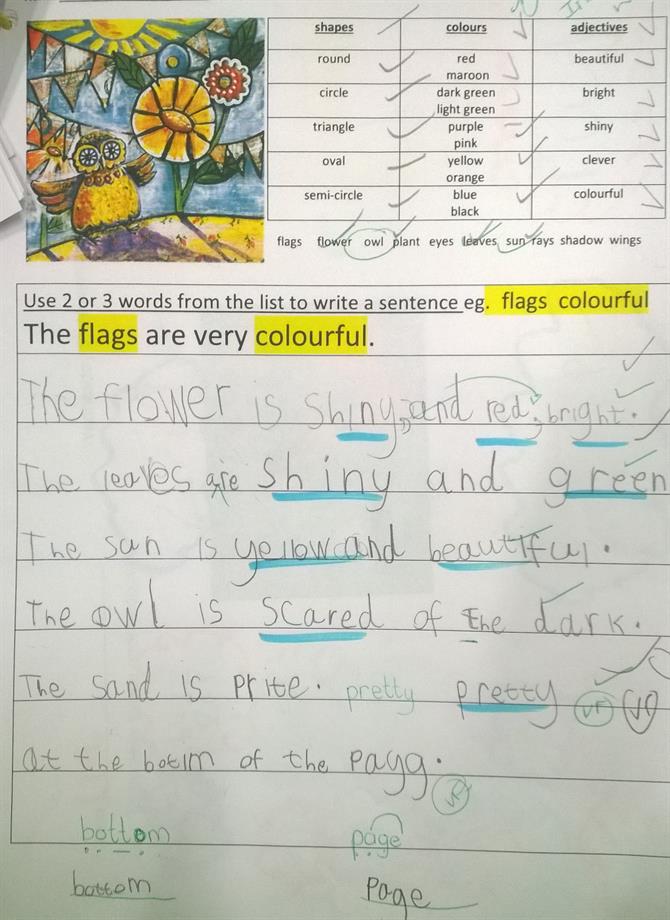 shapes colours adjectives
round red beautiful
maroon
circle dark green bright
light green
triangle purple shiny
pink
oval yellow clever
orange
semi-circle blue colourful
black
flags flower owl plant eyes leaves sun rays shadow wings
Use 2 or 3 words from the list to write a sentence eg. flags colourful
The flags are very colourful.
The flower is shiny, and red, bright.
The leaves are shiny and green
The sun is yellow and beautiful.
The owl is scared of the dark.
The sand is prite. pretty pretty VF VF
at the botim of the pagg.
VF
bottom page
bottom page